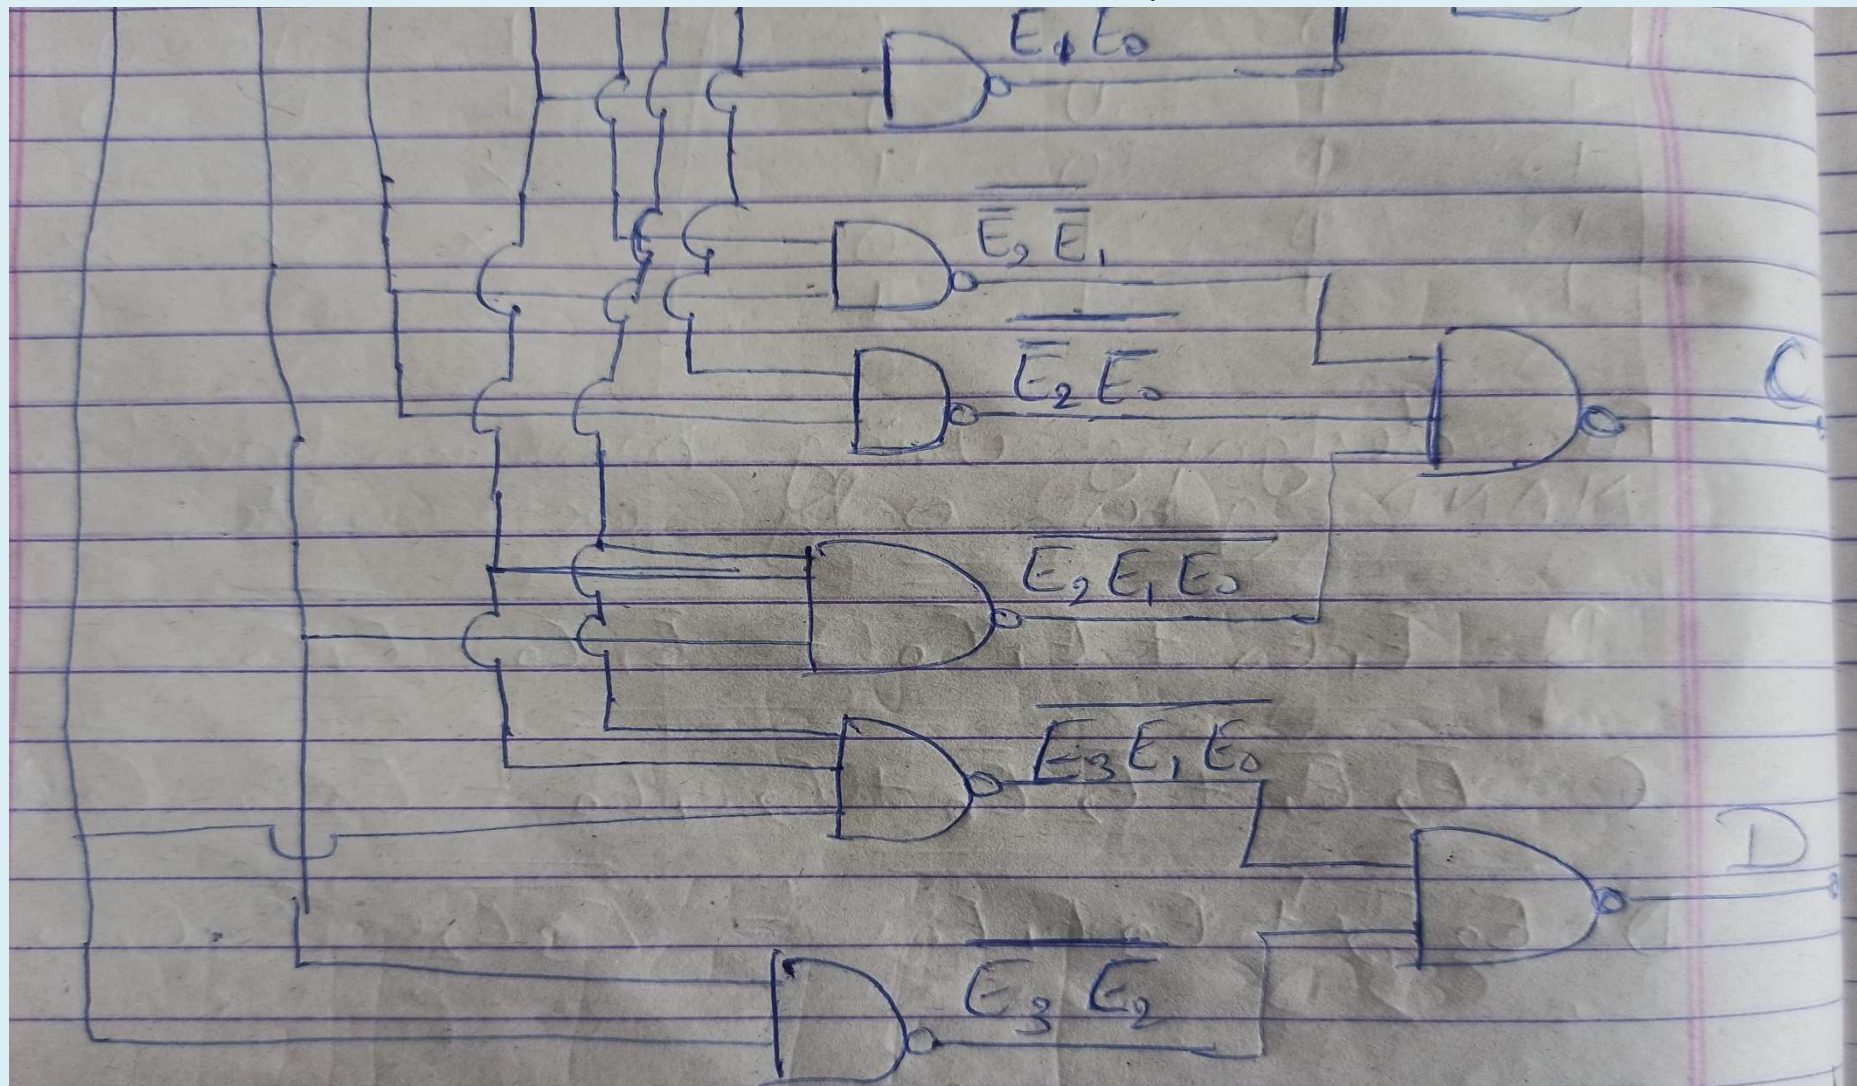 E₁ E₀
E̅₂ E̅₁
E̅₂ E̅₀
C
E₂ E₁ E₀
E₃ E₁ E₀
D
E₃ E₂